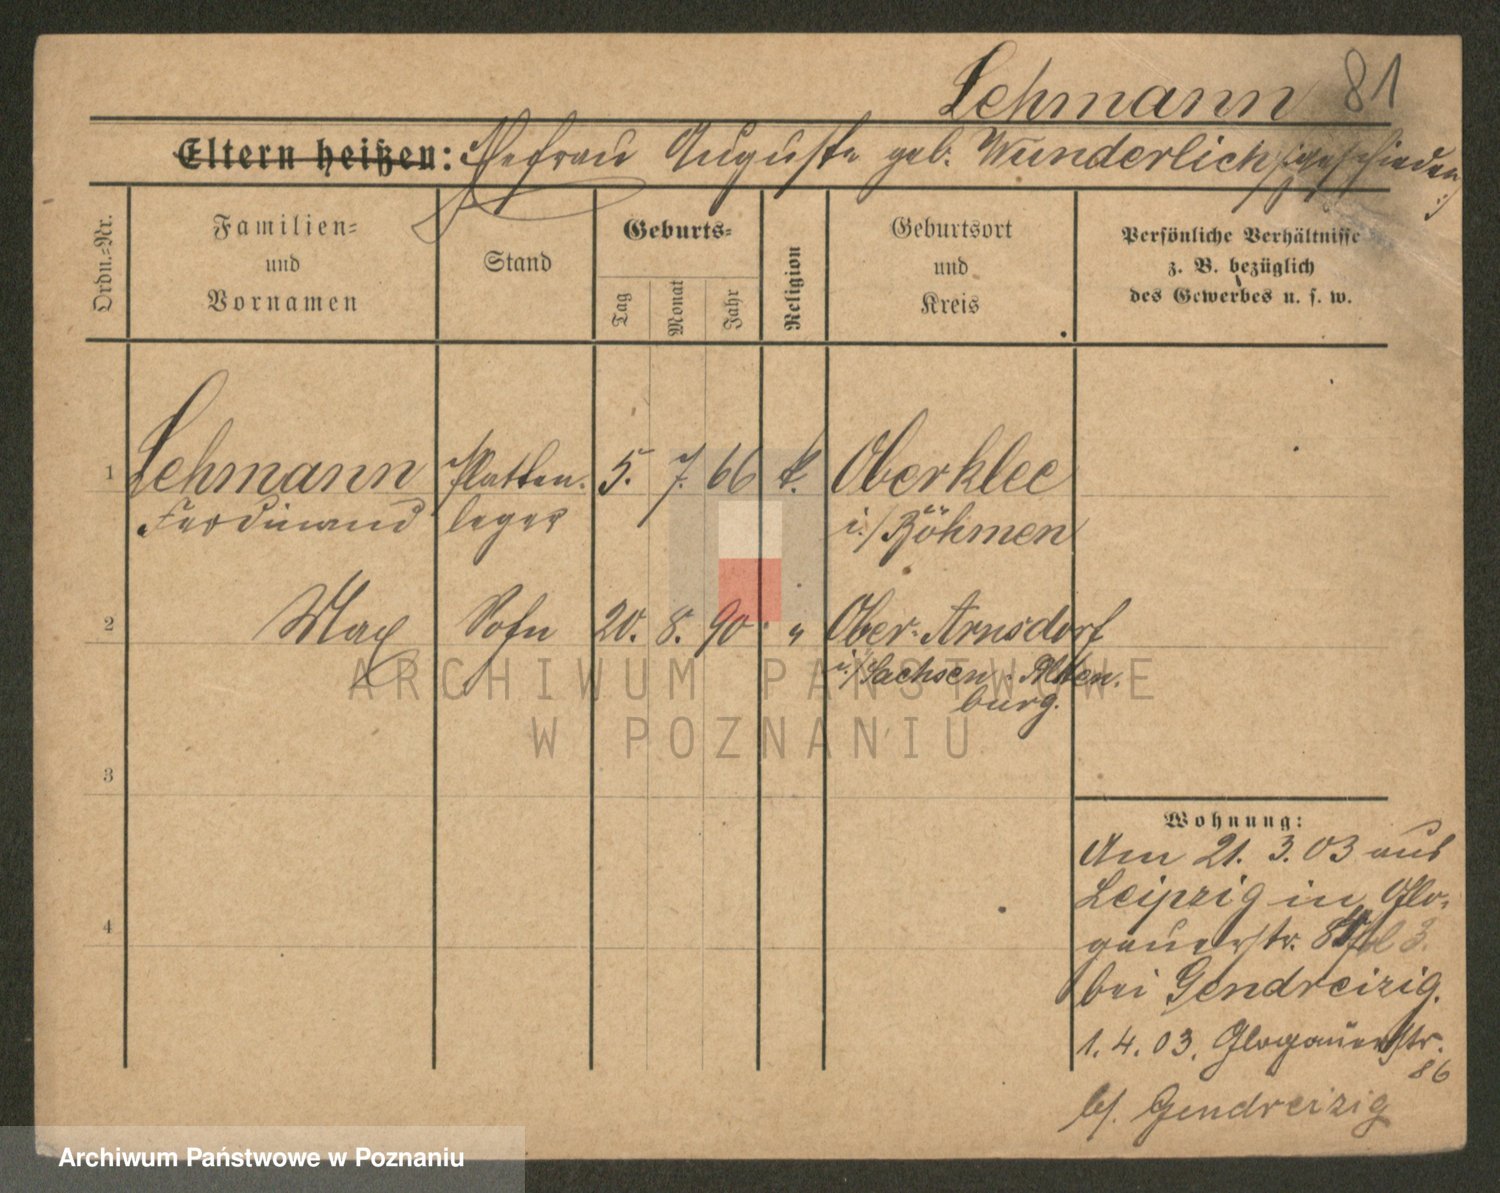 Lehmann 81
Eltern heißen: Ehefrau Auguste geb. Wunderlich /: geschieden :/
Ordn.-Nr.
Familien-
und
Vornamen
Stand
Geburts-
Tag
Monat
Jahr
Religion
Geburtsort
und
Kreis
Persönliche Verhältnisse
z. B. bezüglich
des Gewerbes u. s. w.
1 Lehmann Platten- 5. 7. 66 k. Oberklee
Ferdinand leger i./Böhmen
2 Max Sohn 20. 8. 90 " Ober-Arnsdorf
i./Sachsen-Alten-
burg.
3
4
Wohnung:
Am 21. 3. 03 aus
Leipzig in Glo-
gauerstr.
bei Gendreizig.
1. 4. 03. Glogauerstr.
86
b/. Gendreizig
ARCHIWUM PAŃSTWOWE
W POZNANIU
Archiwum Państwowe w Poznaniu